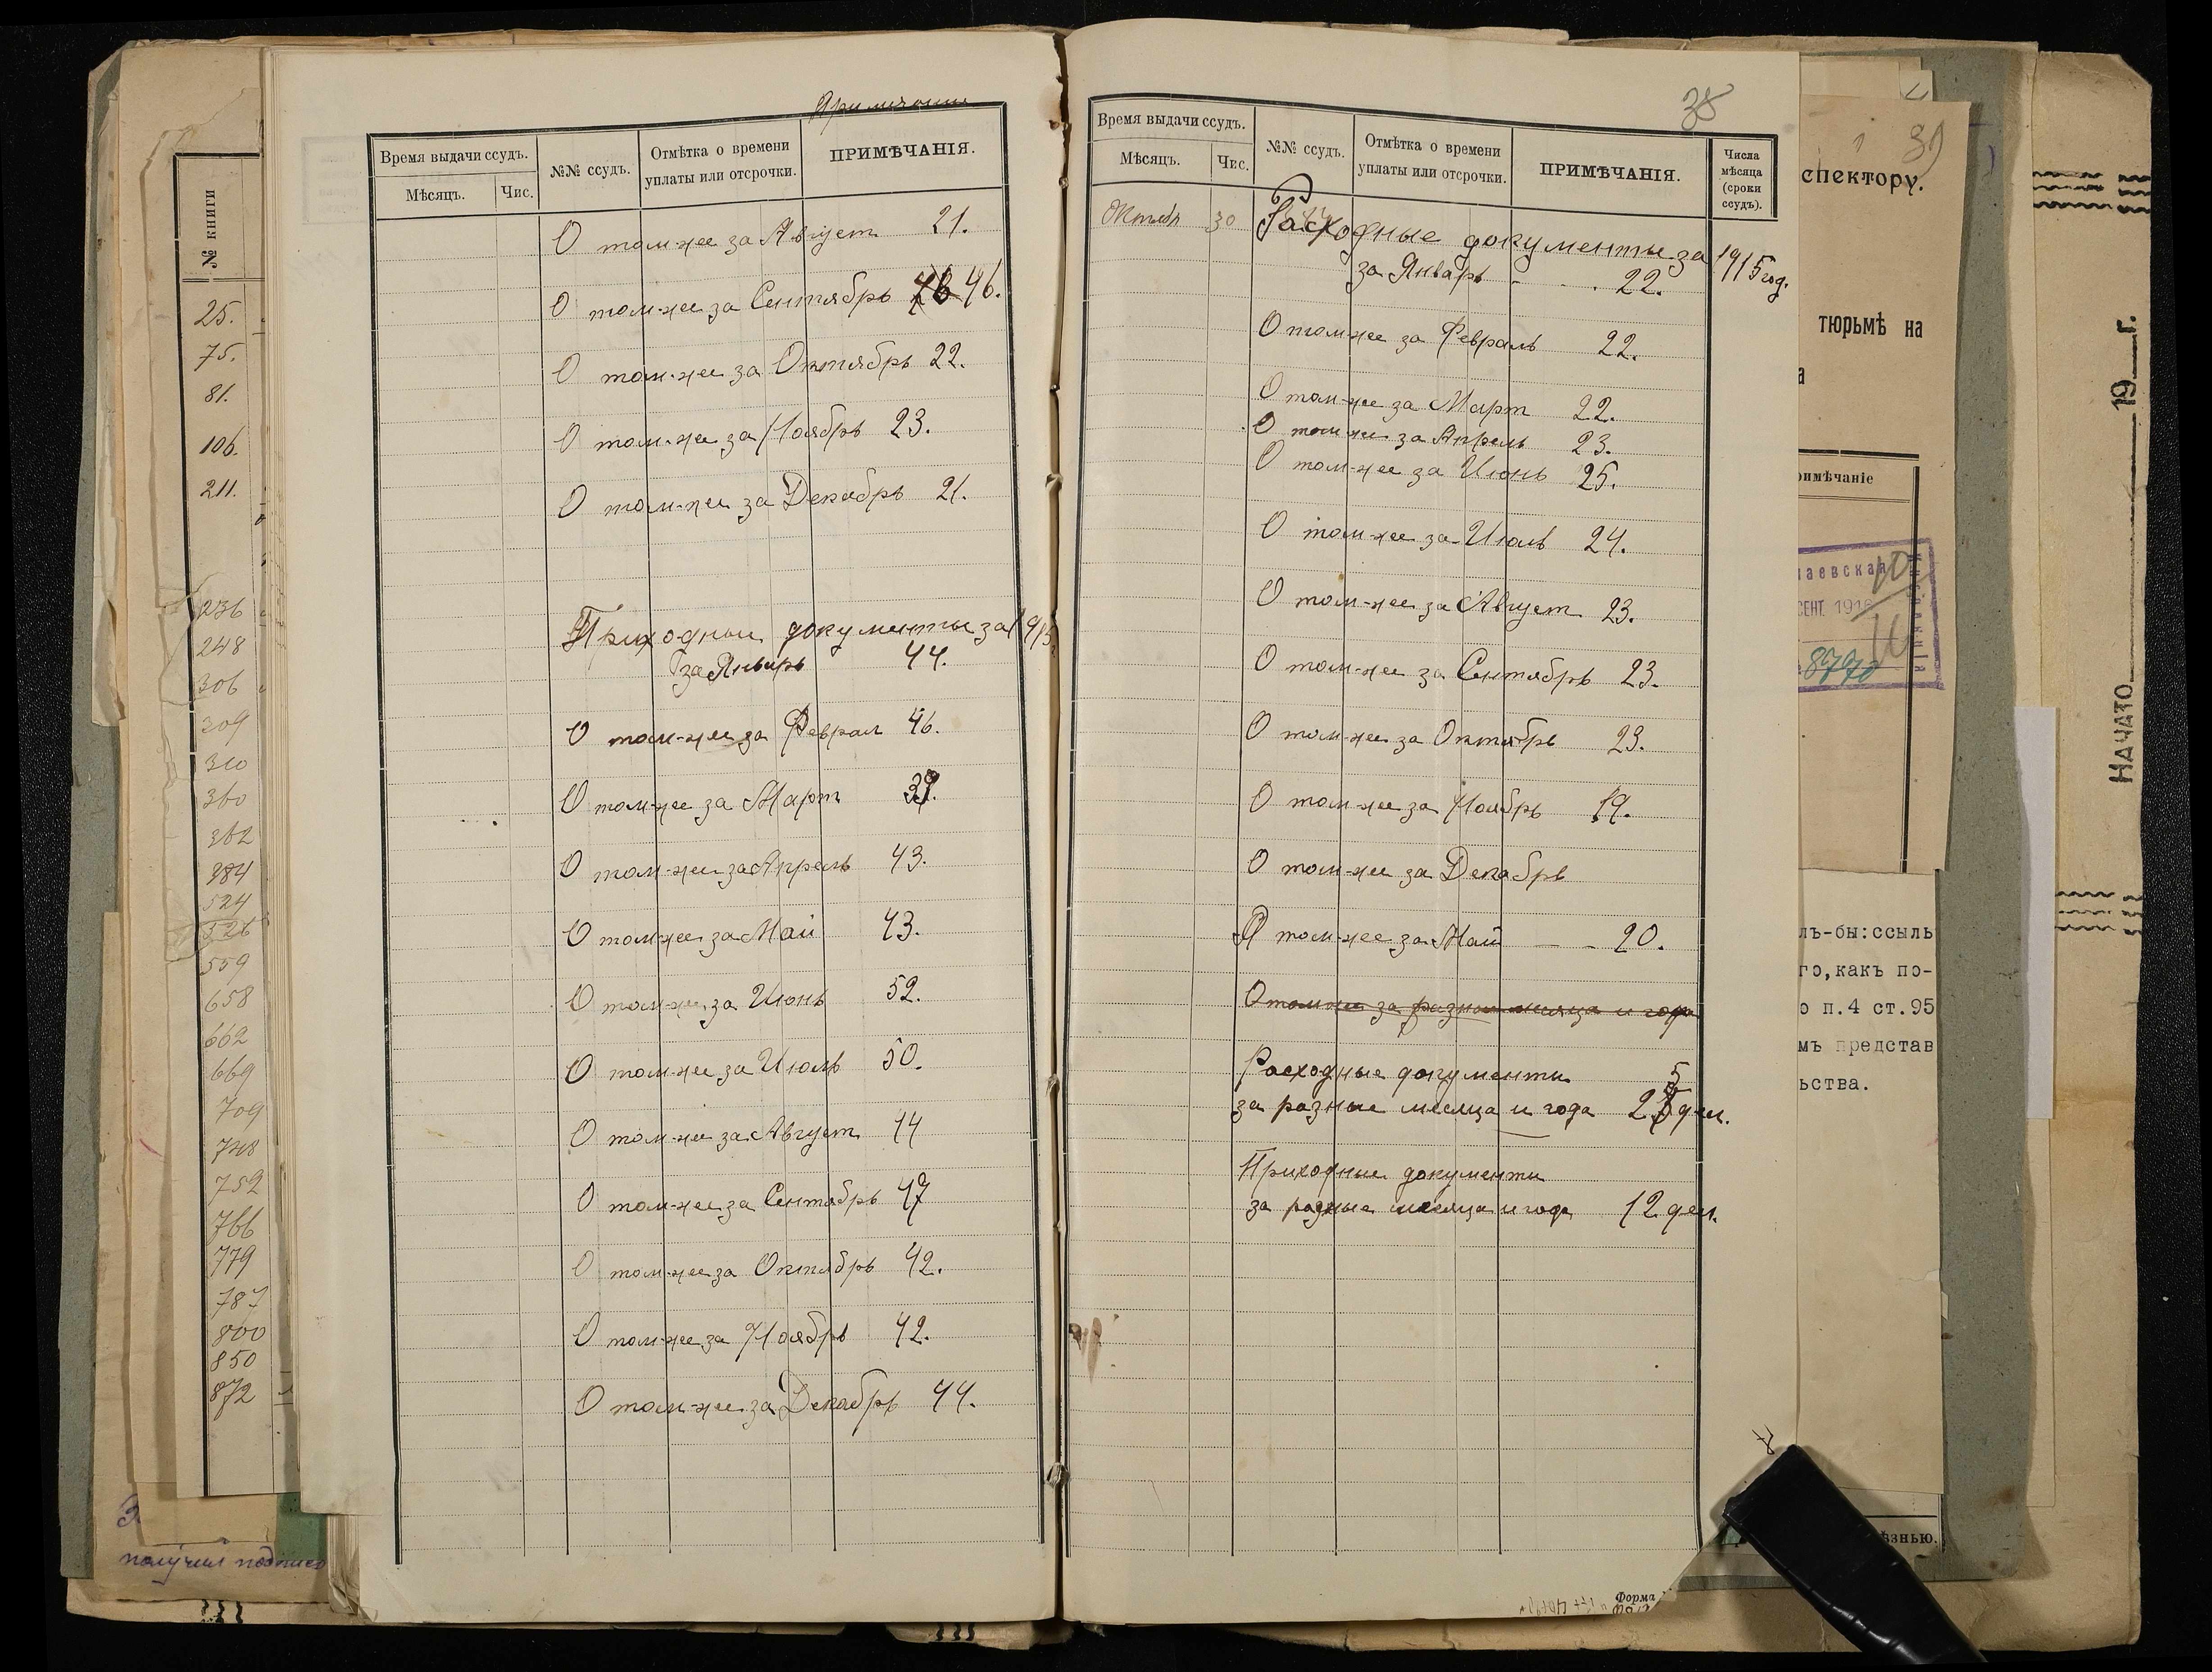 Время выдачи ссудъ.
Мѣсяцъ.
Чис.
№№ ссудъ.
Отмѣтка о времени
уплаты или отсрочки.
ПРИМѢЧАНІЯ.
О том-же за Август 21.
О том-же за Сентябрь 46.
О том-же за Октябрь 22.
О том-же за Ноябрь 23.
О том-же за Декабрь 21.
Приходные документы за 1915
за Январь 44.
О том-же за Феврал 46.
О том-же за Март
О том-же за Апрель 43.
О том-же за Май 43.
О том-же за Июнь 52.
О том-же за Июль 50.
О том-же за Август 44
О том-же за Сентябрь 47
О том-же за Октябрь 42.
О том-же за Ноябрь 42.
О том-же за Декабрь 44.
38
Время выдачи ссудъ.
Мѣсяцъ.
Чис.
№№ ссудъ.
Отмѣтка о времени
уплаты или отсрочки.
ПРИМѢЧАНІЯ.
Числа
мѣсяца
(сроки
ссудъ).
30
Расходные документы за 1915 год.
за Январь - - . 22.
О том-же за Февраль 22.
О том-же за Март 22.
О том-же за Апрель 23.
О том-же за Июнь 25.
О том-же за Июль 24.
О том-же за Август 23.
О том-же за Сентябрь 23.
О том-же за Октябрь 23.
О том-же за Ноябрь 19.
О том-же за Декабрь
О том-же за Май - - 20.
О том-же за разные месяца и года
Расходные документи
за разные месяца и года 25 дел.
Приходные документи
за разные месяца и года 12 дел.
Форма
№ книги
25.
75.
81.
106.
211.
236
248
306
309
310
360
362
384
524
526
559
658
662
669
709
748
752
766
779
787
800
850
872
получил
39
спектору.
тюрьмѣ на
а
римѣчаніе
лаевская
СЕНТ. 1916
8770
лъ-бы:ссыль
го,какъ по-
о п.4 ст.95
мъ представ
ьства.
ѣзнью.
НАЧАТО 19 г.